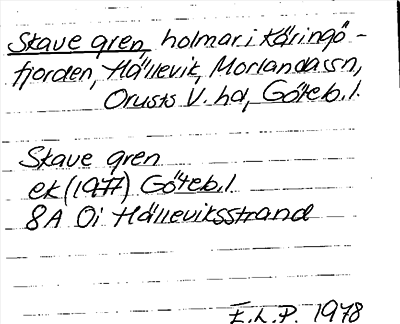 Skave gren, holmar i Käringö-
fjorden, Hällevik, Morlanda sn,
Orusts V. hd, Göteb. l.
Skave gren
ek (1977) Göteb. l
8A 0i Hälleviksstrand
E.L.P. 1978